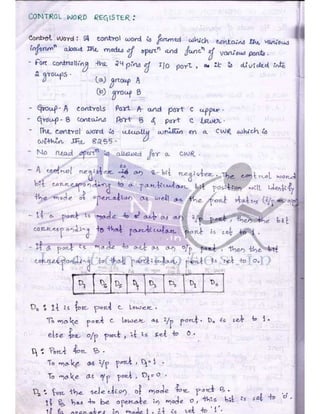 CONTROL WORD REGISTER:
Control word: A control word is formed which contains the various
inform<sup>n</sup> about the modes of oper<sup>n</sup> and func<sup>n</sup> of various ports.
- For controlling the 24 pins of I/O port, it is divided into
2 groups -
(a) group A
(b) group B
- Group-A controls Port A and port C upper.
- Group-B contains Port B & port C lower.
- The control word is usually written on a CWR which is
within the 8255.
- No Read oper<sup>n</sup> is allowed for a CWR.
- A control register is an 8-bit register. The control word
bit corresponding to a particular bit position will identify
the mode of operation as well as the port status (i/p or o/p)
- If a port is made to act as an i/p port then the bit
corresponding to that particular port is set to 1.
- If a port is made to act as an o/p port then the bit
corresponding to that particular port is set to [0.]
D7 D6 D5 D4 D3 D2 D1 D0
D0 : It is for port C Lower.
To make port C Lower as i/p port. D0 is set to 1.
else for o/p port, it is set to 0.
D1 : Port for B.
To make as i/p port, D1=1.
To make as o/p port, D1=0.
D2 : For the selection of mode for port B.
If B has to be operate in mode 0, this bit is set to '0'.
If operates in mode 1, it is set to '1'.